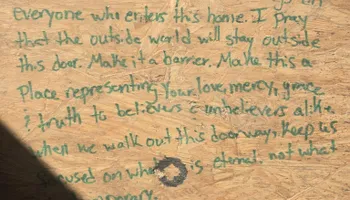 everyone who enters this home. I pray
that the outside world will stay outside
this door. Make it a barrier. Make this a
Place representing Your love, mercy, grace
& truth to believers & unbelievers alike.
When we walk out this doorway, keep us
focused on what is eternal, not what